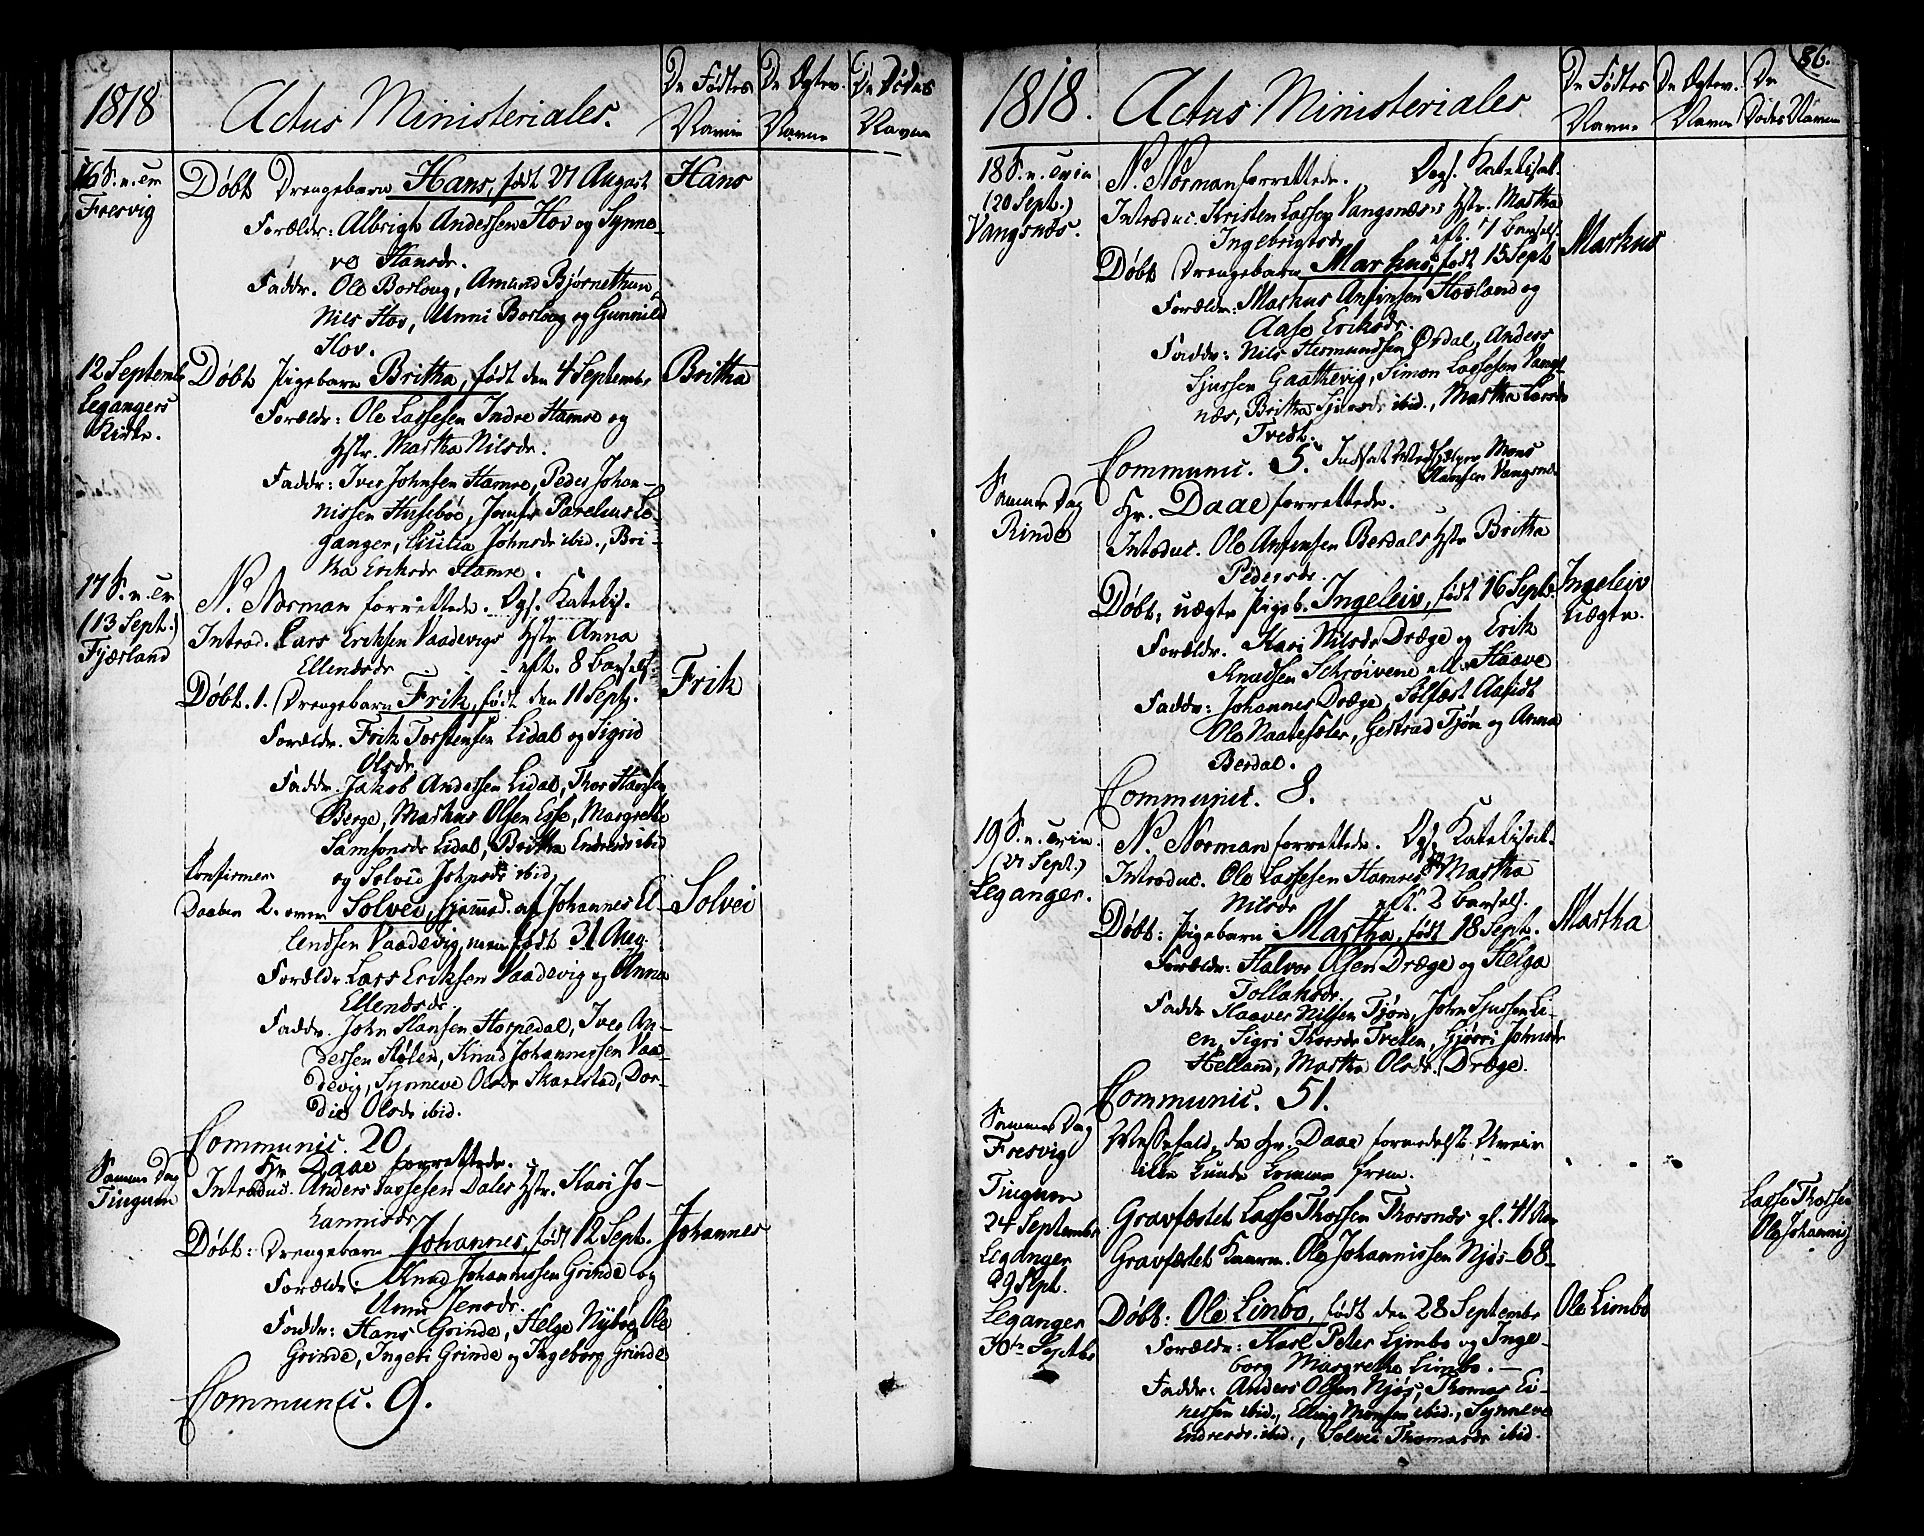 1818
Actus Ministeriales.
De Fødtes Navne
De Egtev. Navne
De Dødes Navne
16 S. n. Tr.
Fresvig
Døbt Drengebarn Hans, født 27 August
Hans
Forældr: Albrigt Andersen Hov og Synne-
ve Hansdr.
Faddr. Ole Borlaug, Amund Bjørnethun,
Nils Hov, Unni Borlaug og Gunnild
Hov.
12 Septembr
Legangers
Kirke.
Døbt Pigebarn Britha, født den 4 Septembr
Britha
Forældr: Ole Lassesen Indre Hamre og
Hstr. Martha Nilsdr.
Faddr: Iver Johnsen Hamre, Peder Johan-
nissen Husebøe, Jomfr Parelius Le-
ganger, Cicilia Johnsdr ibid., Bri-
tha Eriksdr Hamre.
17 S. n. Tr
(13 Sept.)
Fjærland
N. Norman forrettede. Dgs. Katekis.
Introd. Lars Eriksen Vaadevigs Hstr Anna
Ellendsdr eft. 8 Barsels.
Døbt. 1. Drengebarn Frik, født den 11 Sept.
Frik
Forældr. Frik Torstensen Lidal og Sigrid
Olsdr.
Faddr. Jakob Andersen Lidal, Thor Hansen
Berge, Markus Olsen Esse, Margrethe
Samsonsdr Lidal, Britha Endresdr ibid
og Solvei Johnsdr ibid,
Konfirmer.
Daaben 2. over Solvei, hjemmed. af Johannes El-
Solvei
lendsen Vaadevig, men født 31 Aug.
Forældr. Lars Eriksen Vaadevig og Anna
Ellendsdr
Faddr. John Hansen Horpedal, Iver An-
dersen Stølen, Knud Johannessen Vaa-
devig, Synneve Olsdr Skarestad, Dor-
die Olsdr ibid.
Communic. 20
Samme Dag
Tingum
Hr. Daae forrettede.
Introduc. Anders Lassesen Dales Hstr. Kari Jo-
hannisdr
Døbt: Drengebarn Johannes, født 12 Sept.
Johannes
Forældr. Knud Johannessen Grinde og
Unni Jensdr.
Faddr: Hans Grinde, Helge Nybøe, Ole
Grinde, Ingeri Grinde og Ingeborg Grinde
Communic. 9.
86.
1818.
Actus Ministeriales
De Fødtes Navne
De Egtev. Navne
De Dødes Navne
18 S. n. Trin
(20 Sept.)
Vangsnæs.
N. Norman forrettede. Dgs. Katekisat.
Introduc. Kristen Lasseg Vangsnæses Hstr. Martha
Ingebrigtsdr eft. 7 Barsels.
Døbt Drengebarn Markus, født 15 Sept
Markus
Forældr: Markus Anfinsen Hovland og
Aase Eriksdr.
Faddr: Nils Hermundsen Ørdal, Anders
Sjursen Gaathevig, Simon Lassesen Vangs-
næs, Britha Sjursdr ibid., Martha Larsdr
Tvedt.
Communic. 5. Indsat Medhjelper Mons
Olansen Vangsnæs
Samme Dag
Rinde
Hr. Daae forrettede.
Introduc. Ole Anfensen Berdals Hstr Britha
Pedersdr.
Døbt: uægte Pigeb. Ingeleiv, født 16 Septr.
Ingeleiv
uægte.
Forældr. Kari Nilsdr Dræge og Erik
Knudsen Schrøivene ell. Haave
Faddr: Johannes Dræge, Solfæst Aafedt
Ole Naatesæter, Gertrud Tjøn og Anna
Berdal.
Communic. 8.
19 S. n. Trin.
(27 Sept.)
Leganger.
N. Norman forrettede. Dgs. Katekisat.
Introduc. Ole Lassesen Hamres Hstr Martha
Nilsdr eft. 2 Barsels.
Døbt: Pigebarn Martha, født 18 Sept.
Martha
Forældr: Halvor Olsen Dræge og Helga
Tollaksdr.
Faddr Haaver Nilsen Tjøn, John Sjursen Li-
en, Sigri Thorsdr Tveten, Gjøri Johnsdr
Helland, Martha Olsdr. Dræge.
Communic. 51.
Samme Dag
Fresvig
Messefald, da Hr. Daae formedelst Uveir
ikke kunde komme frem.
Tingum
24 Septembr
Gravfæstet Lasse Thorsen Thorsnæs gl. 41 Aar
Lasse Thorsen
Leganger
29 Sept.
Gravfæstet Kaarm. Ole Johannissen Njøs - 68 -
Ole Johannis
Leganger
30te Septbr
Døbt: Ole Limbo, født den 28 Septembr
Ole Limbo
Forældr: Karl Peter Limbo og Inge-
borg Margrethe Limbo. -
Faddr: Anders Olsen Njøs, Thomas Ei-
nessen ibid., Elling Monsen ibid., Synneve
Endresdr. ibid., Solvei Thomasdr ibid.